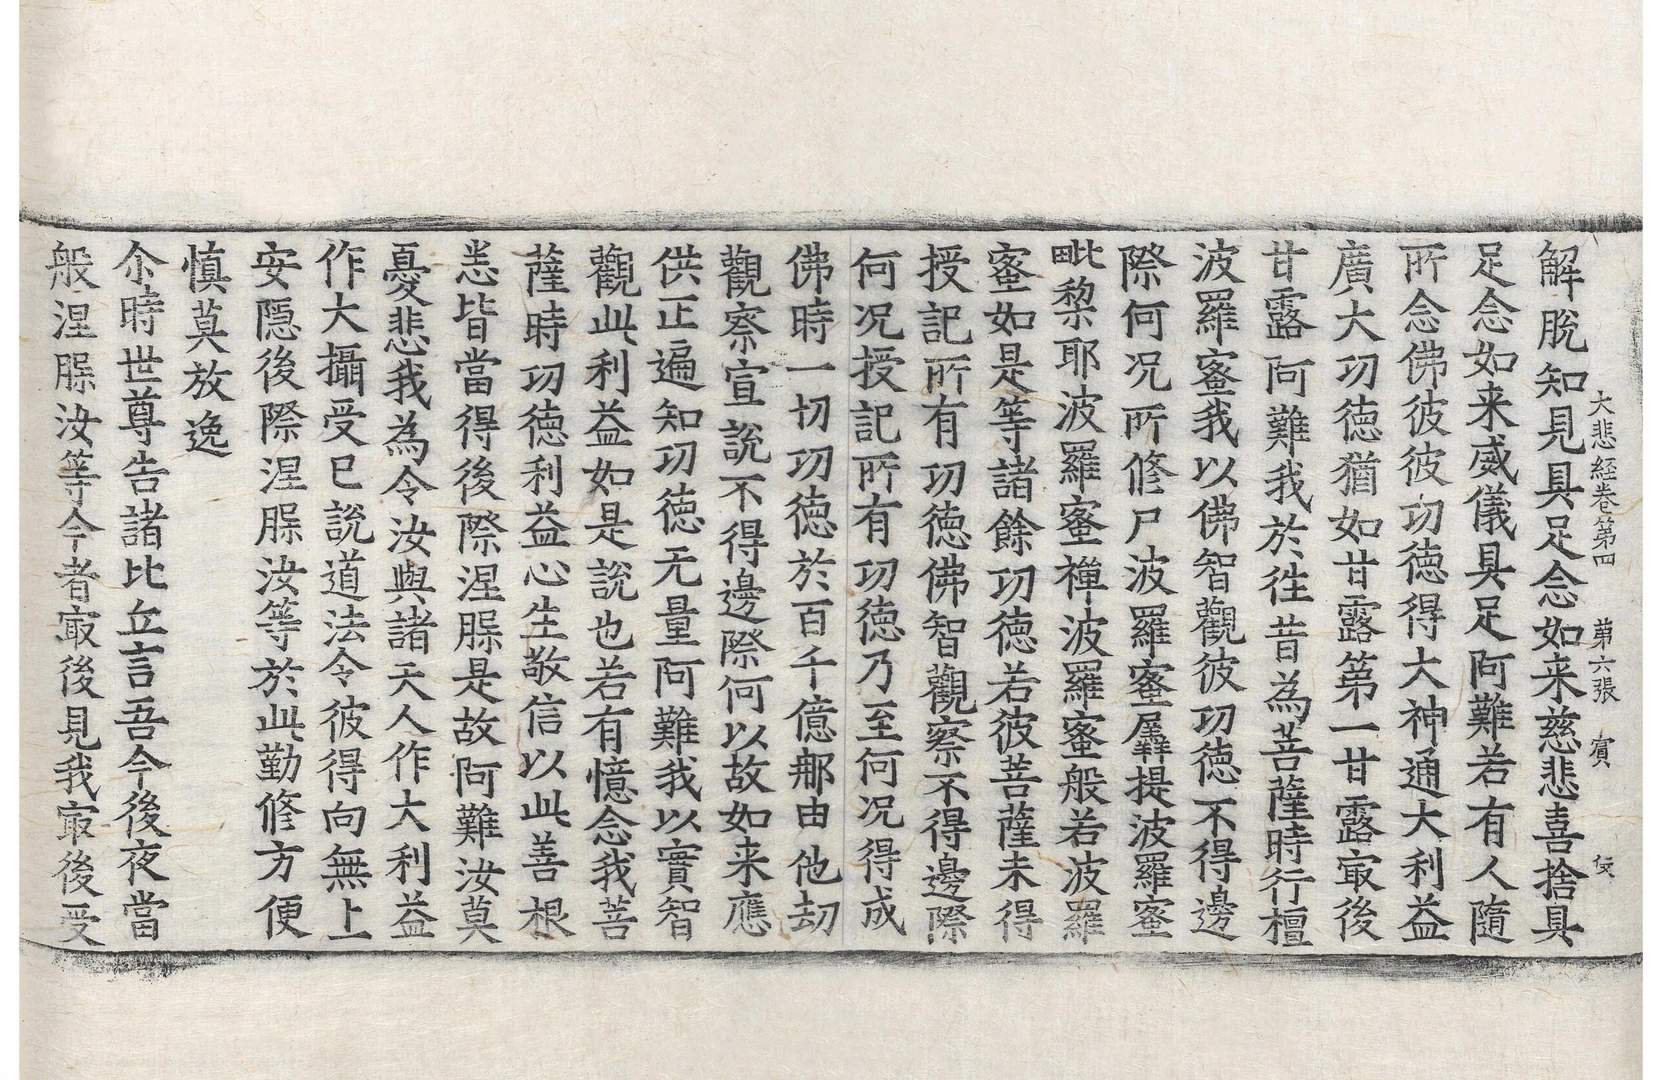 大悲経卷第四 第六張 賓
解脫知見具足念如来慈悲喜捨具
足念如来威儀具足阿難若有人隨
所念佛彼彼功德得大神通大利益
廣大功德猶如甘露第一甘露㝡後
甘露阿難我於往昔為菩薩時行檀
波羅蜜我以佛智觀彼功德不得邊
際何况所修尸波羅蜜羼提波羅蜜
毗梨耶波羅蜜禪波羅蜜般若波羅
蜜如是等諸餘功德若彼菩薩未得
授記所有功德佛智觀察不得邊際
何况授記所有功德乃至何况得成
佛時一切功德於百千億那由他劫
觀察宣說不得邊際何以故如来應
供正遍知功德无量阿難我以實智
觀此利益如是說也若有憶念我菩
薩時功德利益心生敬信以此善根
悉皆當得後際涅槃是故阿難汝莫
憂悲我為令汝與諸天人作大利益
作大攝受已說道法令彼得向無上
安隱後際涅槃汝等於此勤修方便
慎莫放逸
尒時世尊告諸比丘言吾今後夜當
般涅槃汝等今者㝡後見我㝡後受